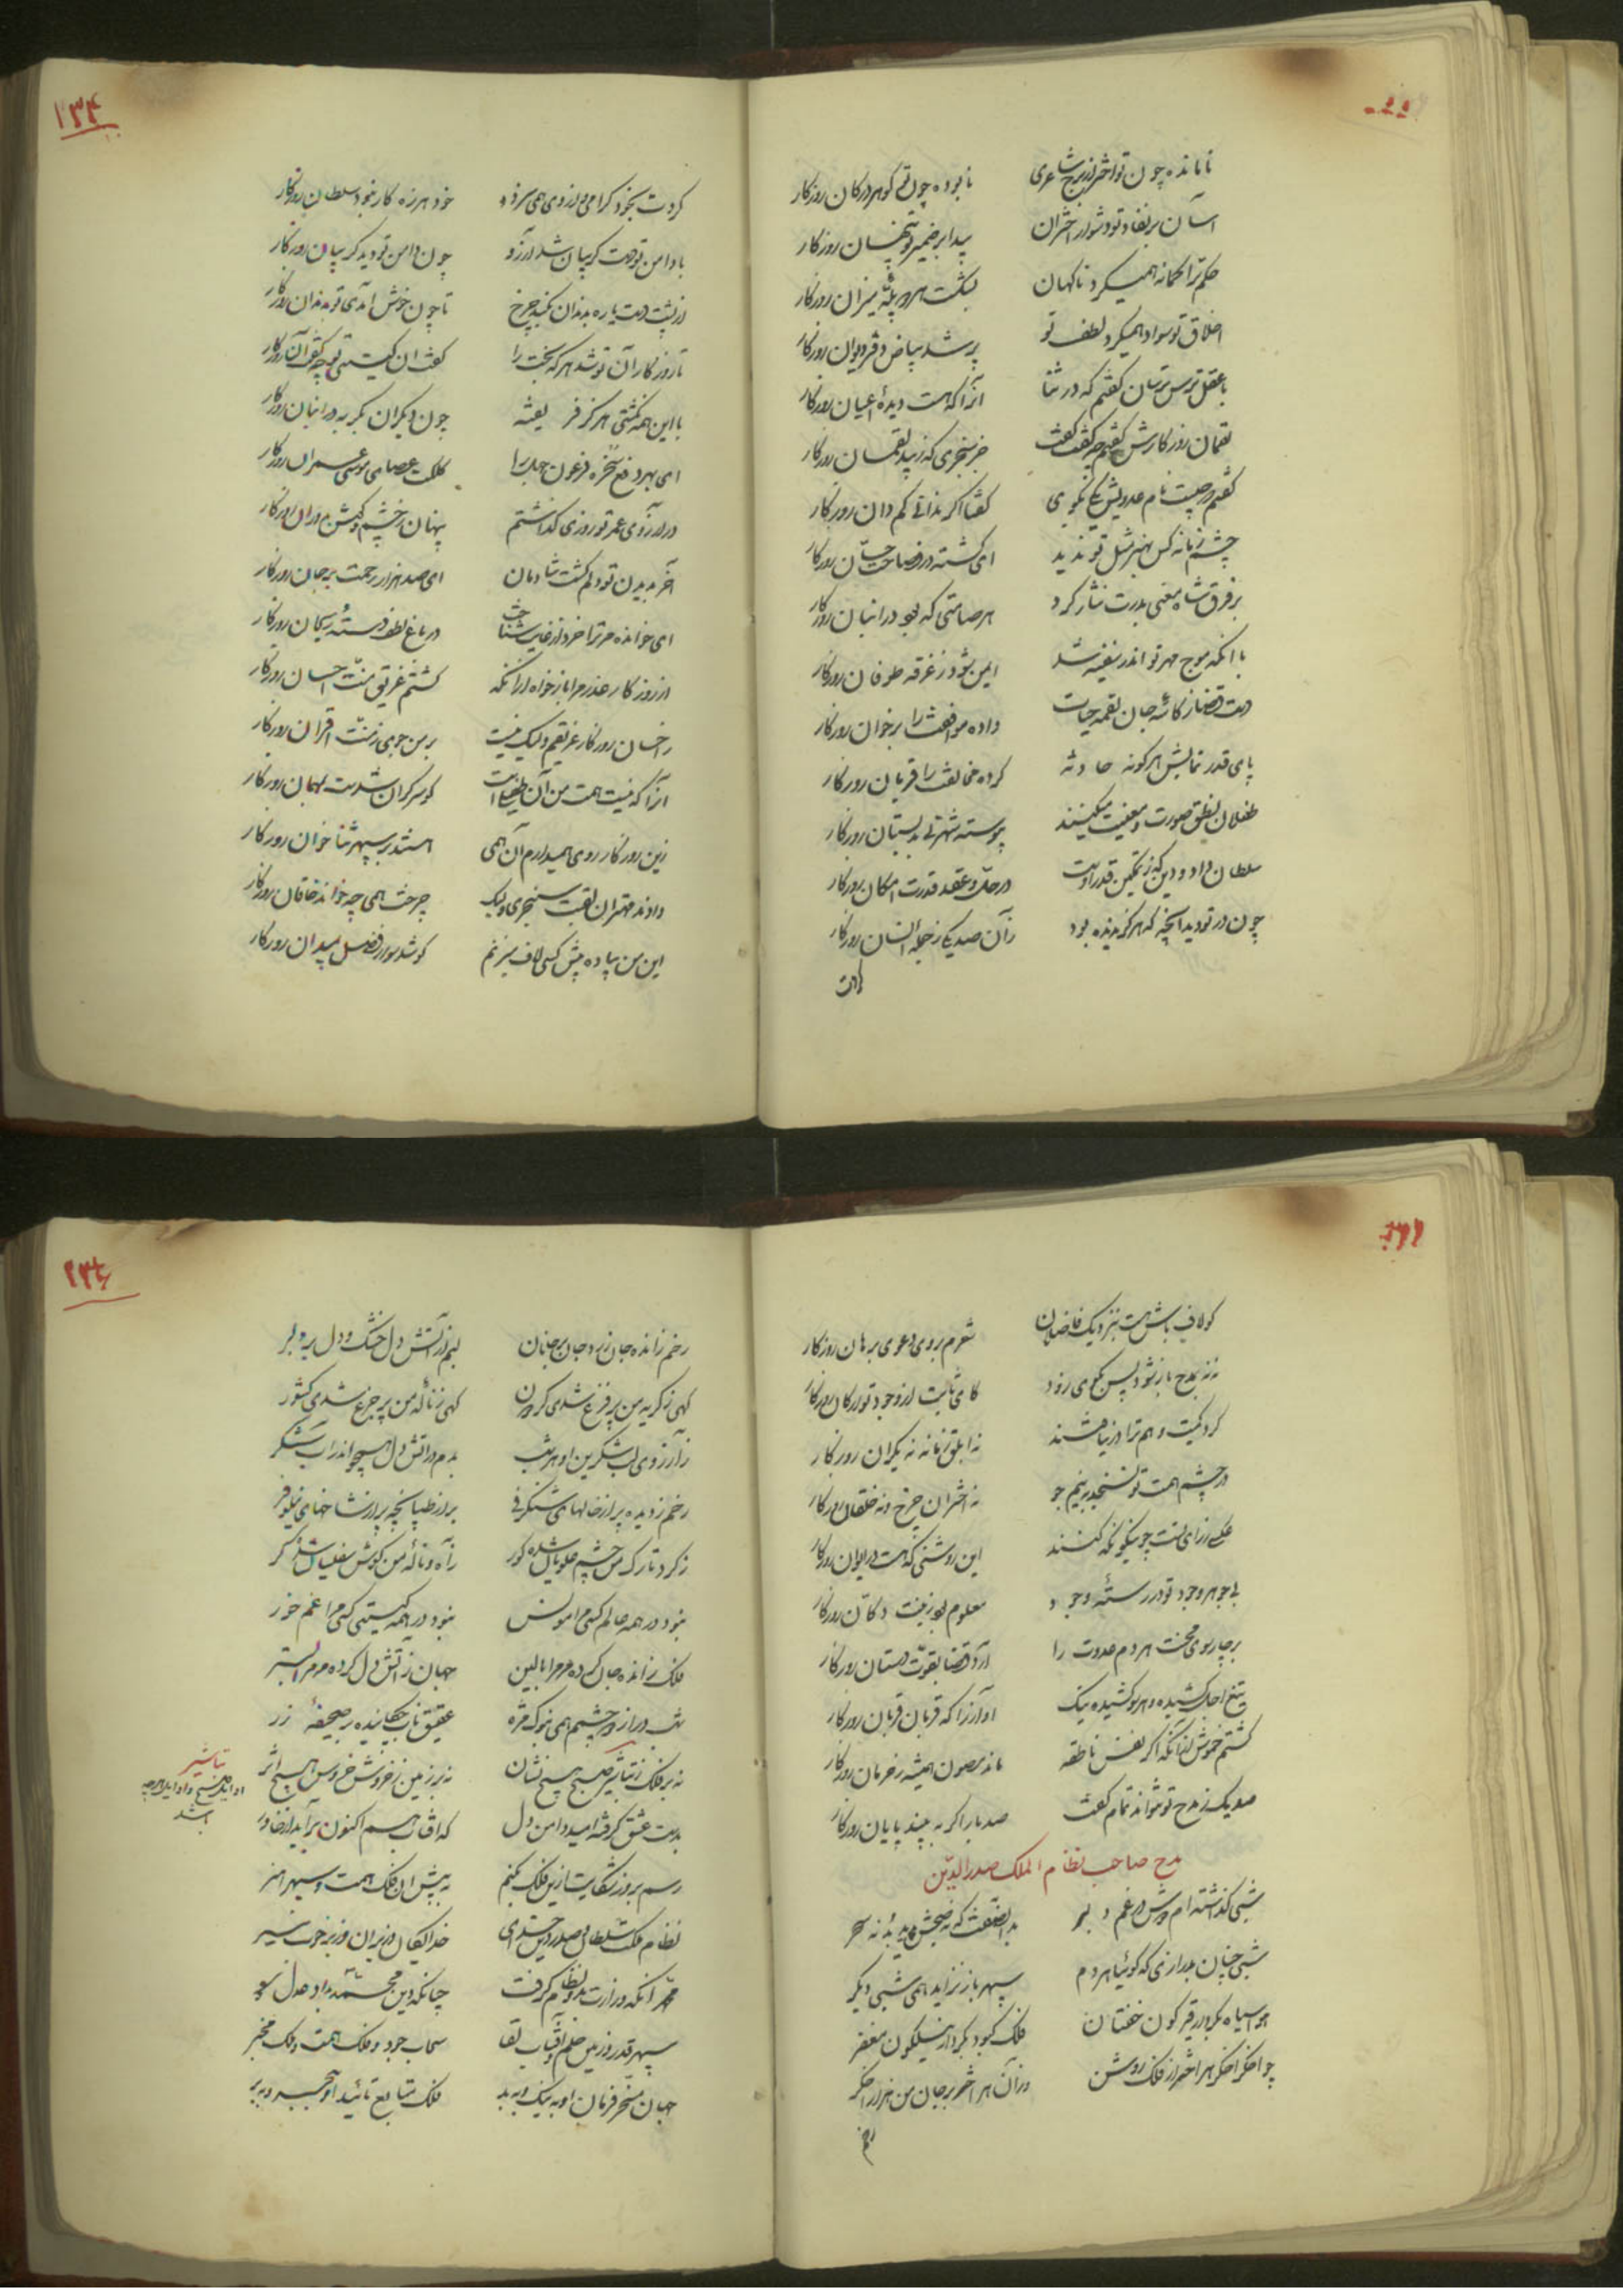 نا مانده چون تو اختر از برج شاعری
نا بوده چون تو گوهر در کان روزگار
آسان بر نفاذ تو دشوار اختران
پیدا بر ضمیر تو پنهان روزگار
حکم ترا کمانه همیکرد ناگهان
بشکست هر دو پلّهٔ میزان روزگار
اخلاق تو سواد همیکرد لطف تو
پر شد بیاض دفتر و دیوان روزگار
با عقل ترس ترسان گفتم که در ثنا
آنرا که هست دیدهٔ اعیان روزگار
لقمان روزگارش گفتم چه گفت گفت
خر سنجری که زیبد لقمان روزگار
گفتم ورچیست نام عدویش بگوی
گفتا اگر ندانی کم دان روزگار
چشم زمانه کس بهنر مثل تو ندید
ای گشته در فصاحت حسّان روزگار
بر فرق شاه معنی بدرت نثار کرد
هر صامتی که بود در انبان روزگار
با آنکه موج مهر تو اندر سفینه شد
ایمن بود ز غرقه طوفان روزگار
دست قضا ز کاسهٔ جان لقمهٔ حیات
داده موافقت را بر خوان روزگار
پای قدر نمایش هر گونه حادثه
کرده مخالفت را قربان روزگار
طفلان نطق صورت و معنیت میکنند
پیوسته شهرتی بدبستان روزگار
سلطان داد و دین که ز تمکین قدر اوست
در حلّ و عقد قدرت امکان روزگار
چون در تو دید آنچه که هرگز ندیده بود
زان صد یکی ز جمله انسان روزگار
کردت
۱۳۴
کردت بخود گرامی و از روی می سزد
خود هرزه کار نبود سلطان روزگار
با دامن تو دست گریبان شد آرزو
چون دامن تو دید گریبان روزگار
از پشت دست پاره بدندان بکند چرخ
تا چون خوش آمدی تو بدندان روزگار
تا روزگار آن تو شد هر که بخت را
گفت آن کیستی تو چه گفت آن روزگار
با این همه نگشتی هرگز فریفته
چون دیگران بگربه در انبان روزگار
ای بهر دفع سخره فرعون جهل را
کلکت عصای موسی عمران روزگار
در آرزوی عمر تو روزی گذاشتم
پنهان ز چشم و گوش دوران روزگار
آخر بدیدن تو دلم گشت شادمان
ای صد هزار رحمت بر جان روزگار
ای خوانده مر ترا خرد از غایت شناخت
در باغ لطف دستهٔ ریحان روزگار
از روزگار عذر مرا باز خواه از آنکه
گشتم غریق منّت احسان روزگار
ز احسان روزگار غریقم ولیک نیست
بر من جوی ز منّت اقران روزگار
آنرا که نیست همت من آن طفیلی است
کو سرگران شدست بمهمان روزگار
زین روزگار روی همیدارم آن همی
استد بر سپهر ثنا خوان روزگار
دادند مهتران لقبت سنجری ولیک
چرخت همی چه خواند خاقان روزگار
این من پیاده پیش کسی لاف میزنم
کو شد سوار فضل بمیدان روزگار
کو لاف باشدست بنزدیک فاضلان
شعرم بروی دعوی برهان روزگار
نه نه بمدح باز شو و پس بگوی زود
کای ثابت از وجود تو ارکان روزگار
گرد کمیت وهم ترا در نیافتند
نه ابلق زمانه نه یکران روزگار
در چشم همت تو نسنجد به نیم جو
نه اختران چرخ و نه خلقان روزگار
عکسی ز رای تست چو نیکو نگه کنند
این روشنی که هست در ایوان روزگار
بی جوهر وجود تو در رستهٔ وجود
معلوم بود زینت دکان روزگار
بر چار سوی محنت هر دم عدوت را
آرد قضا بقوّت دستان روزگار
تیغ اجل کشیده و هر سو کشیده نیک
او آنرا که قربان قربان روزگار
گشتم خموش از آنکه اگر نفس ناطقه
ماند مصون همیشه ز حرمان روزگار
صد یک ز مدح تو نتواند تمام گفت
صد بار اگر به چند پایان روزگار
مدح صاحب نظام الملک صدر الدین
شبی گذاشته‌ام دوش در غم دلبر
بدان صفت که نه صبحش پدید بد نه سحر
شبی چنان بدرازی که گوئیا هر دم
سپهر باز نزاید همی شبی دیگر
هوا سیاه بکردار قیرگون خفتان
فلک کبود بکردار نیلگون مغفر
چو اخگر اخگر هر اختر از فلک روشن
وزان هر اختر بر جان من هزار اخگر
رخم
۱۳۵
رخم ز انده جان زرد و جان بر جانان
لبم ز آتش دل خشک و دل بر دلبر
گهی ز گریه من پر فزع شدی گردون
گهی ز ناله من پر جزع شدی کشور
ز آرزوی لب شکرین او هر شب
بدم در آتش دل همچو اندر آب شکر
رخم ز دیده پر از خالهای شنگرفی
بر از طپانچه پر از شاخهای نیلوفر
ز گرد تارک من چشم علویان شده کور
ز آه و ناله من گوش سفلیان شده کر
نبود در همه عالم کسی مرا مونس
نبود در همه گیتی کسی مرا غم خور
فلک ز انده جان کرده مر مرا بالین
جهان ز آتش دل کرده مر مرا بستر
شب دراز دو چشمم همی بنوک مژه
عقیق ناب چکانیده بر صحیفهٔ زر
نه بر فلک ز تباشیر صبح هیچ نشان
نه بر زمین ز خروش خروس هیچ اثر
بدست عشق گرفته امید دامن دل
که آفتاب هم اکنون برآید از خاور
رسم بروز شکایت از این فلک بکنم
به پیش آن فلک همت و سپهر هنر
نظام ملکت سلطان و صدر دین خدای
خدایگان وزیران وزیر خوب سیر
محمد آنکه وزارت بدو نظام گرفت
چنانکه دین محمّد بداد و عدل عمر
سپهر قدر و زمین حلم و آفتاب لقا
سحاب جود و فلک همت و ملک مخبر
جهان مسخّر فرمان او به نیک و به بد
فلک متابع تائید او به بحر و به بر
تباشیر
اوایل صبح و اوایل هرچه
باشد